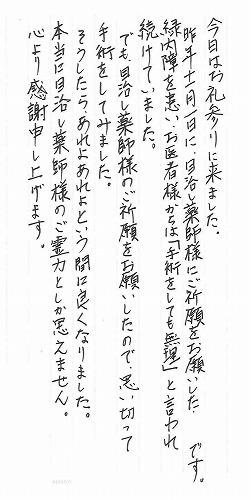 今日はお礼参りに来ました。
昨年十一月一日に、目治し薬師様にご祈願をお願いした
です。
緑内障を患い、お医者様からは「手術をしても無理」と言われ
続けていました。
でも、目治し薬師様のご祈願をお願いしたので、思い切って
手術をしてみました。
そうしたら、あれよあれよという間に良くなりました。
本当に目治し薬師様のご霊力としか思えません。
心より感謝申し上げます。